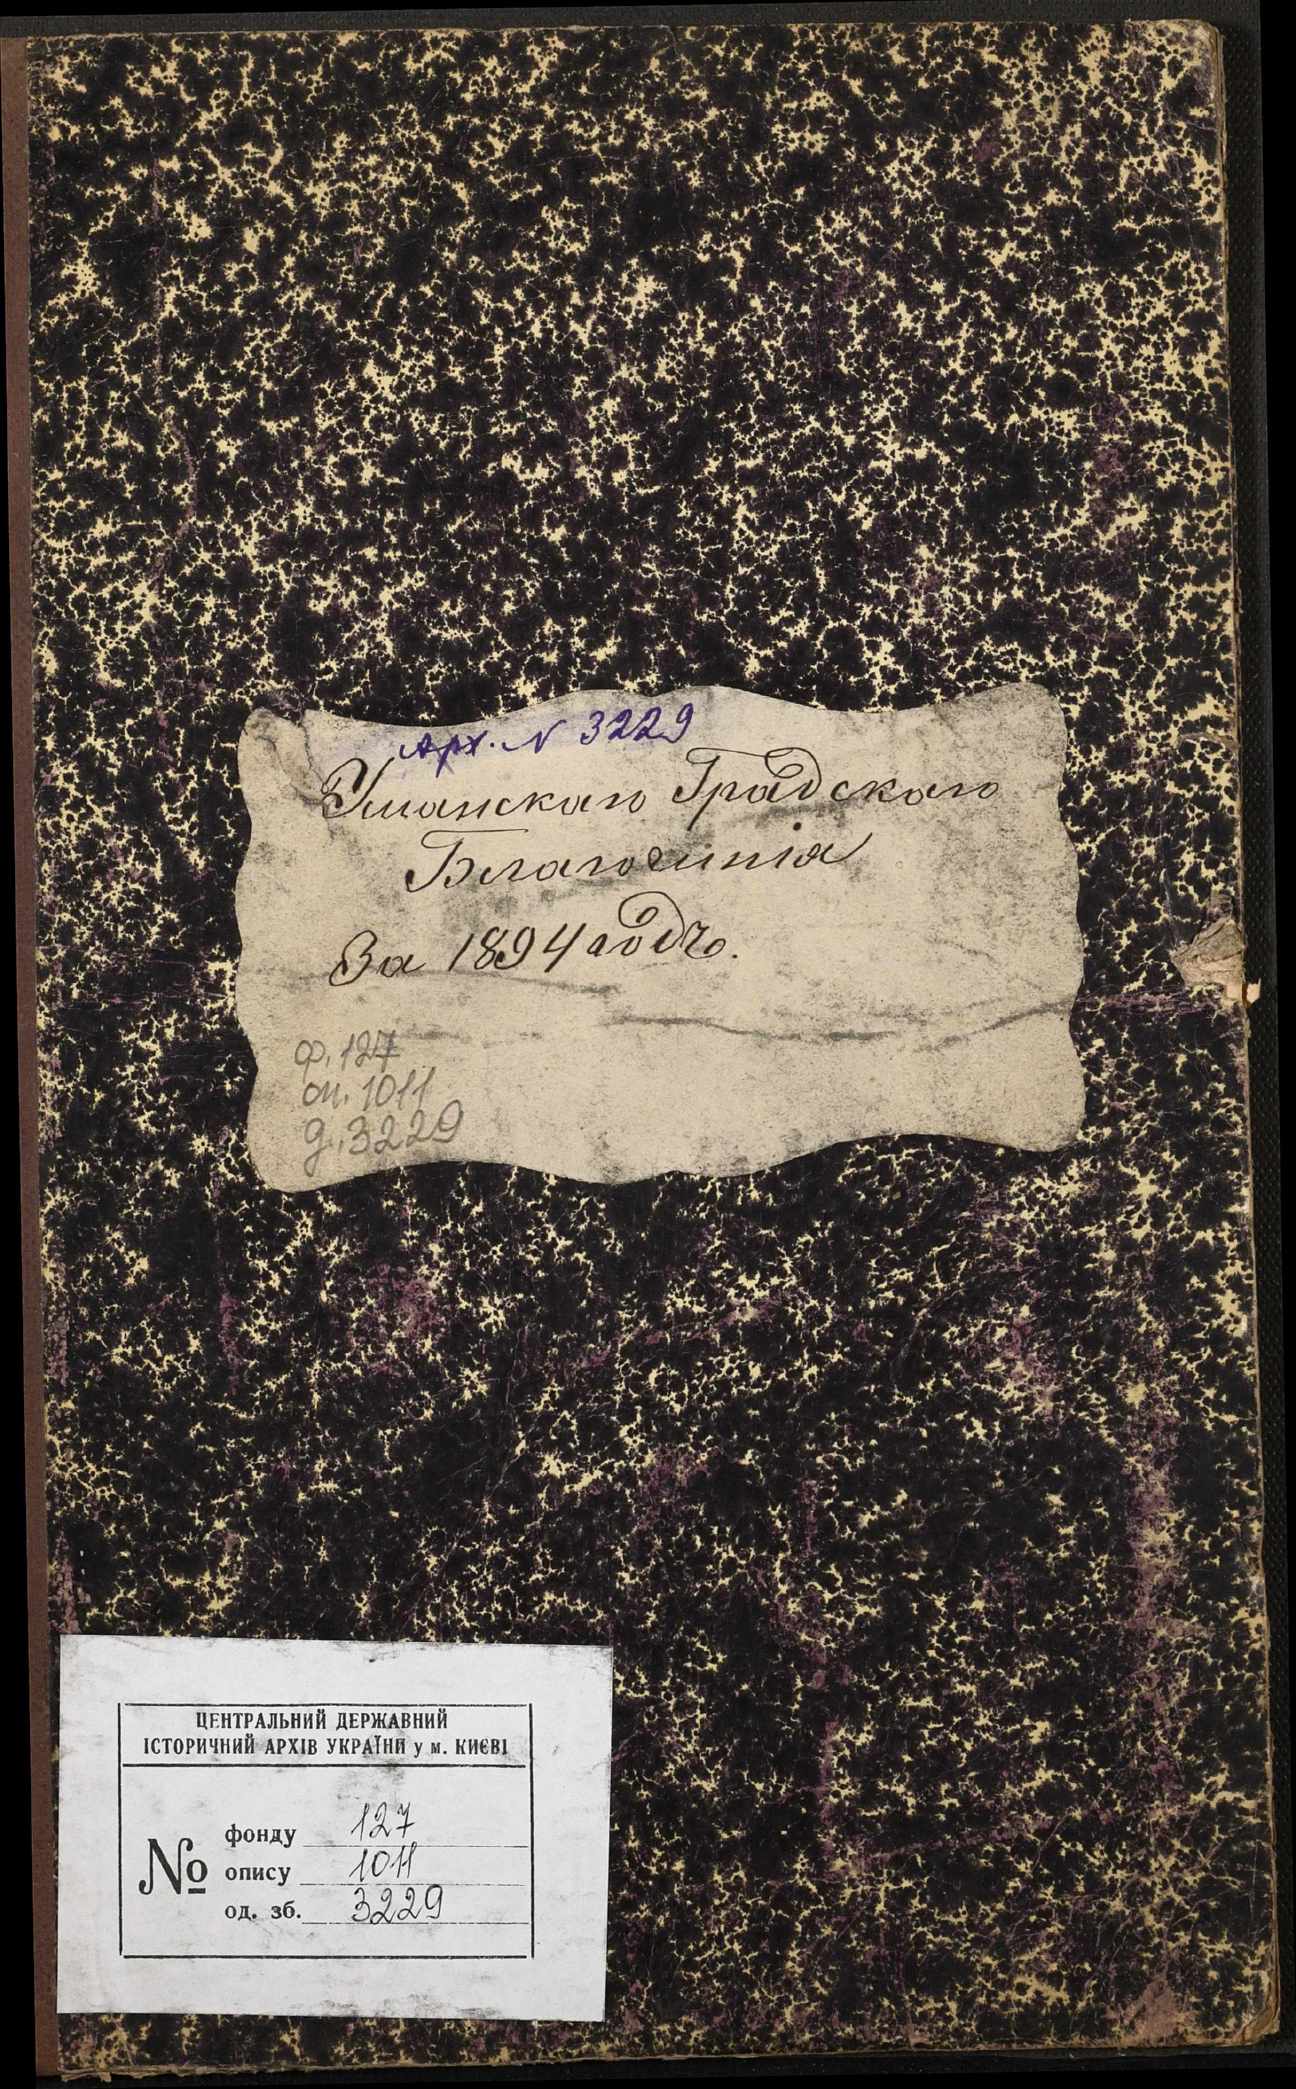 Арх. N 3229
Уманскаго Градскаго
Благочинія
За 1894 годъ.
ф. 127
оп. 1011
д. 3229
ЦЕНТРАЛЬНИЙ ДЕРЖАВНИЙ
ІСТОРИЧНИЙ АРХІВ УКРАЇНИ у м. КИЄВІ
№
фонду 127
опису 1011
од. зб. 3229